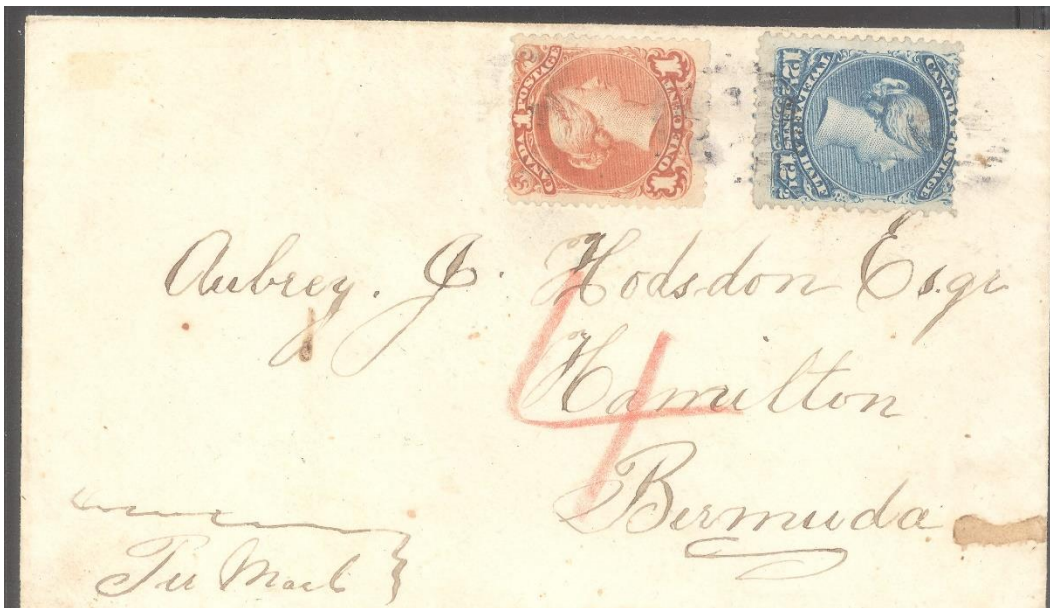 CANADA POSTAGE
1 1
ONE CENT
CANADA POSTAGE
12½ 12½
TWELVE & A HALF CENTS
Aubrey. J. Hodsdon Esqr
4
Hamilton
Bermuda
Per Mail